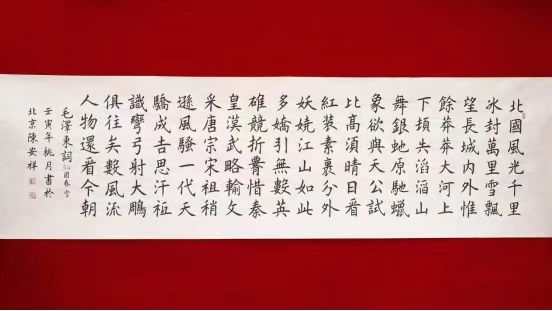 北國風光千里
冰封萬里雪飄
望長城內外惟
餘莽莽大河上
下頓失滔滔山
舞銀蛇原馳蠟
象欲與天公試
比高須晴日看
紅裝素裹分外
妖嬈江山如此
多嬌引無數英
雄競折腰惜秦
皇漢武略輸文
采唐宗宋祖稍
遜風騷一代天
驕成吉思汗祗
識彎弓射大鵰
俱往矣數風流
人物還看今朝
毛澤東詞沁園春雪
壬寅年桃月書於
北京陳安祥